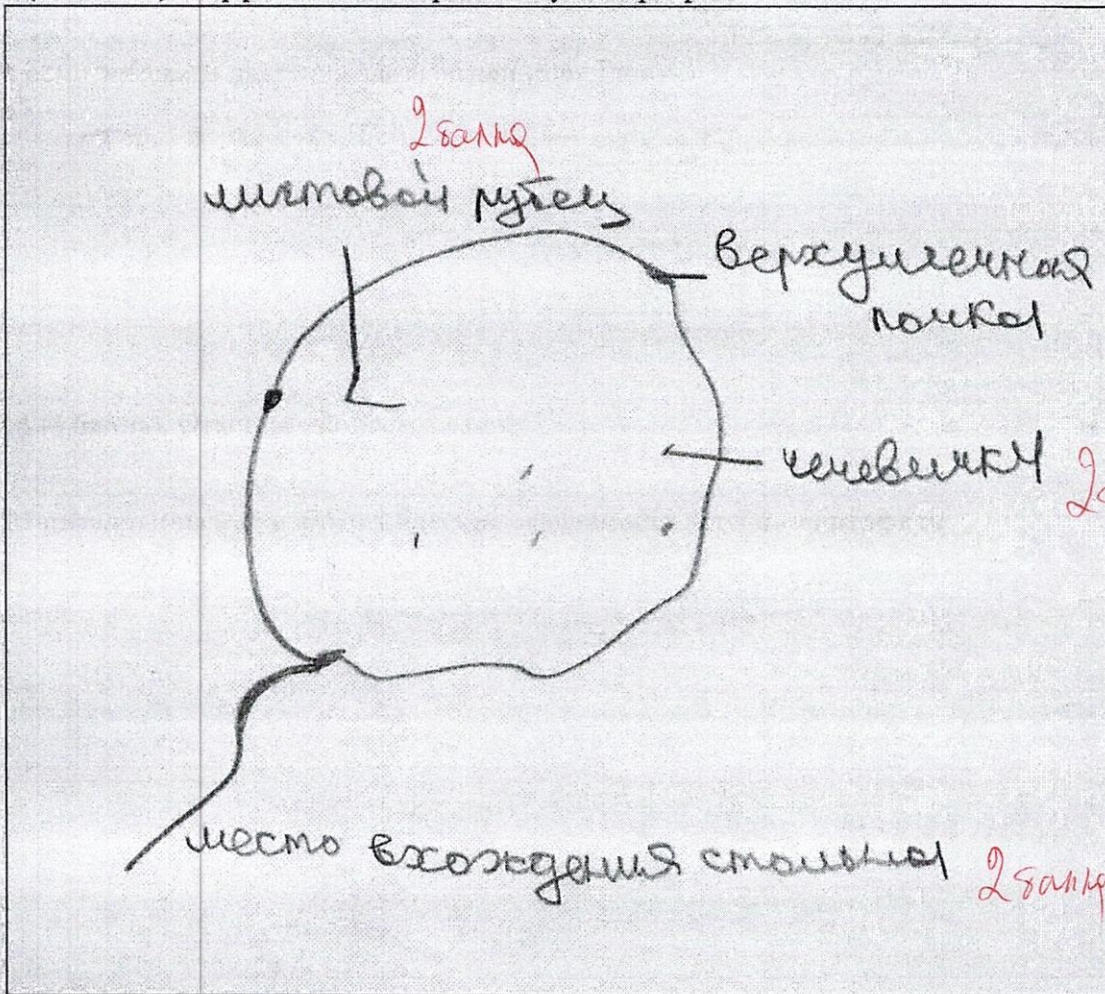 2 балла
листовой рубец
верхушечная
почка
чечевички
место вхождения столона
2 балла